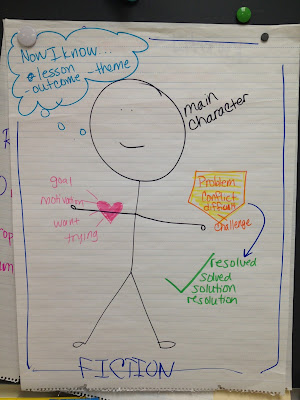 Now I know...
lesson
-outcome
-theme
main
character
goal
motivation
want
trying
Problem
Conflict
difficult
challenge
resolved
solved
solution
resolution
FICTION